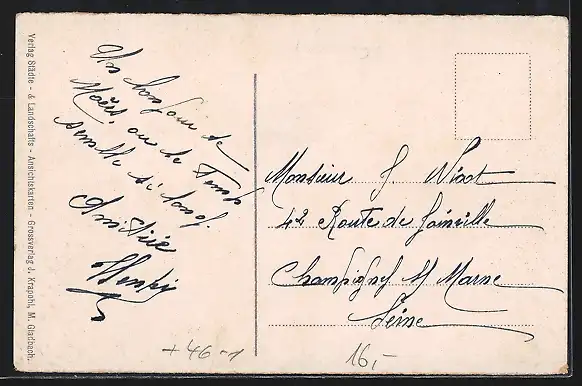 Verlag Städte- & Landschafts-Ansichtskarten - Grossverlag J. Krapohl, M. Gladbach.
Un bonjour de
Metz, ou le Temps
semble si long.
Amitiés
Henry
Monsieur J. Viaot
42 Route de Joinville
Champigny s/ Marne
Seine
+46-1
16,-